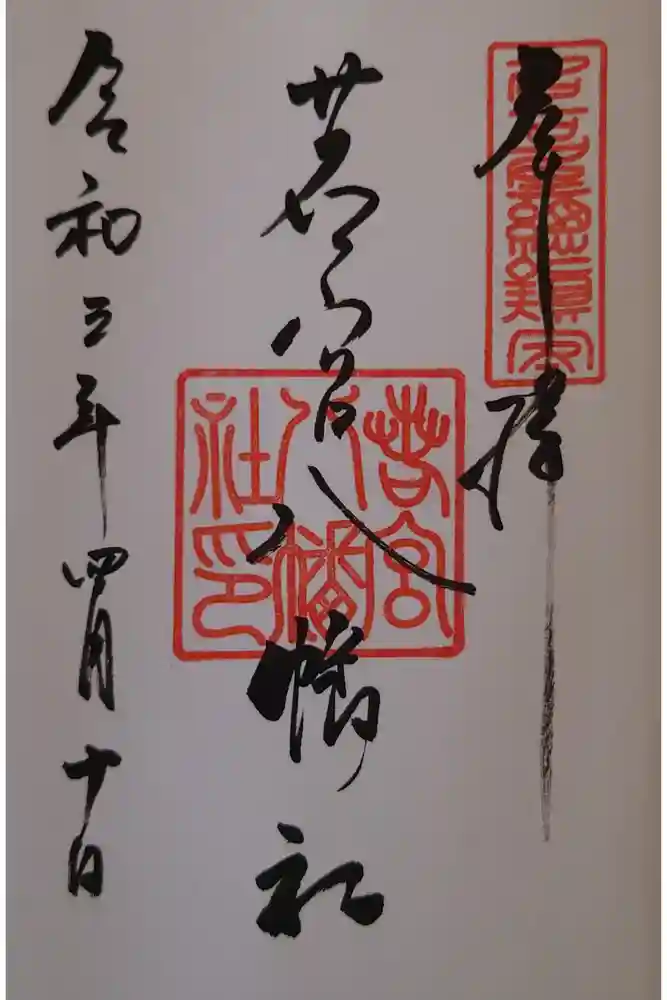 奉拝
若宮八幡社
若宮
八幡
社印
令和三年四月十日